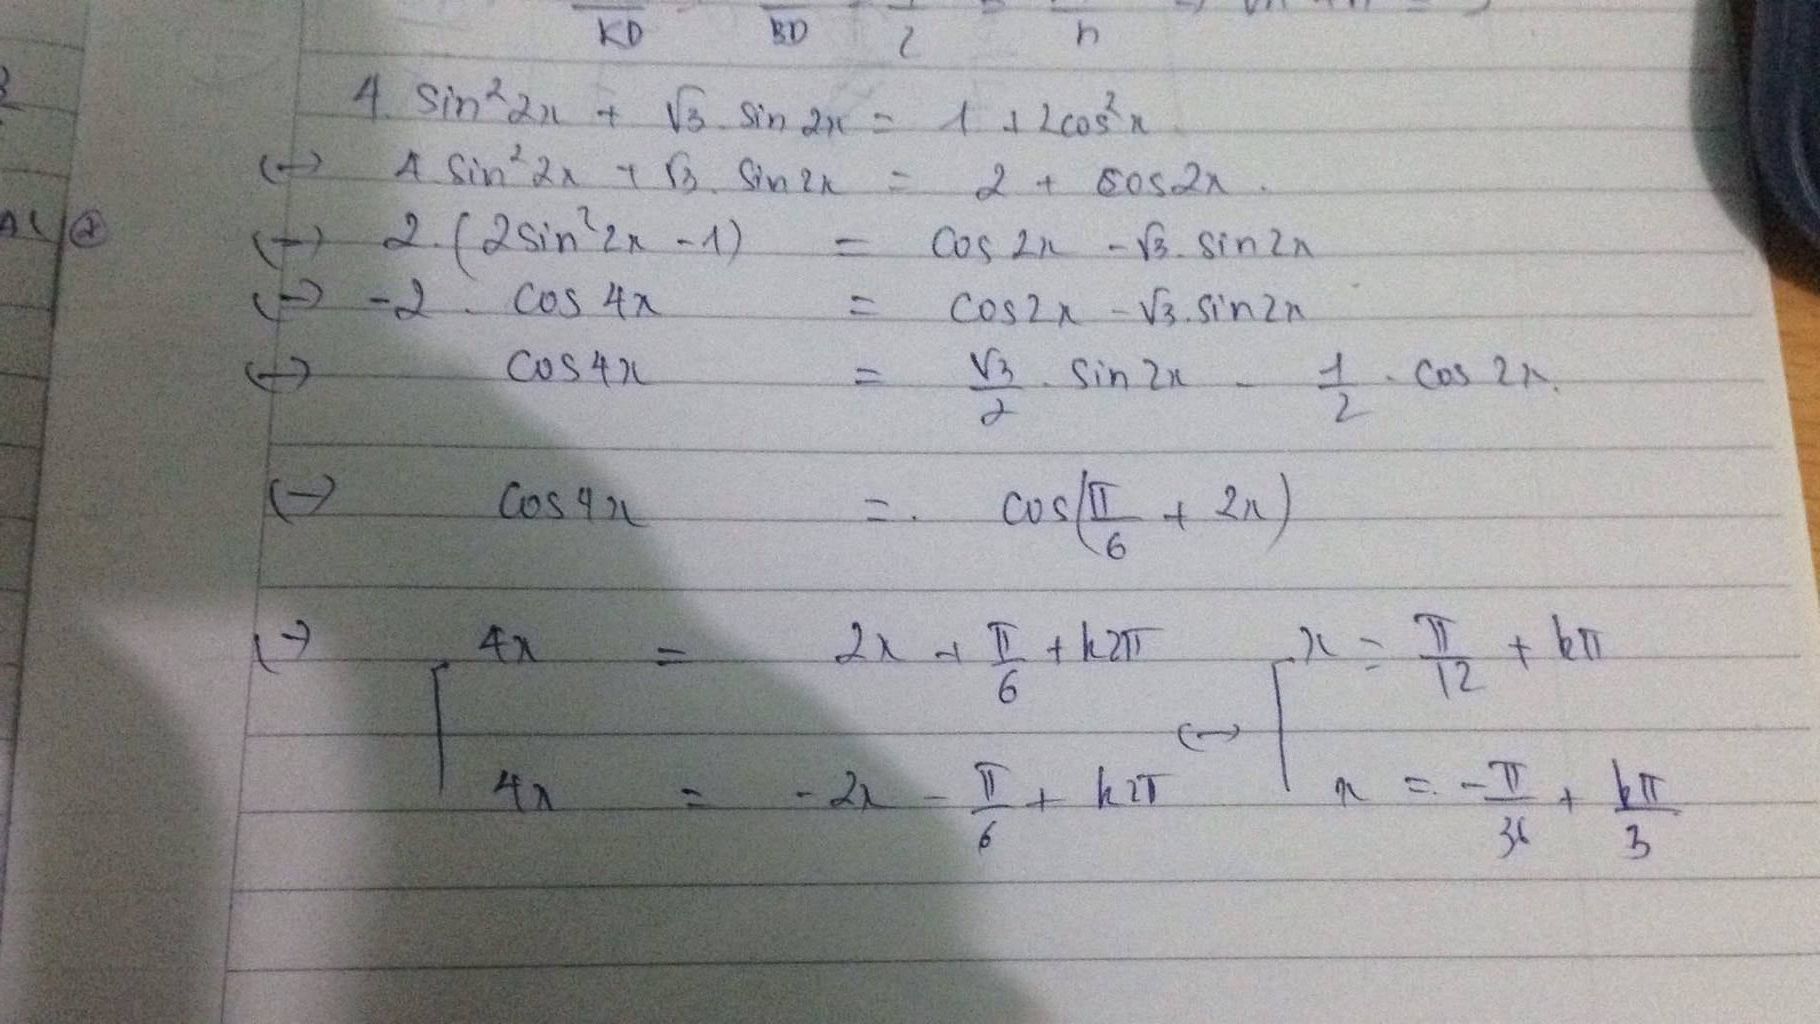 KD BD 2 h
4 sin²2x + √3 sin 2x = 1 + 2cos²x
↔ 4 sin²2x + √3. sin2x = 2 + cos2x.
↔ 2.(2sin²2x - 1) = cos 2x - √3. sin2x
↔ -2. cos 4x = cos2x - √3.sin2x
↔ cos4x = √3/2 . sin 2x - 1/2 . cos 2x.
↔ cos4x = cos(π/6 + 2x)
↔ [ 4x = 2x + π/6 + k2π ↔ [ x = π/12 + kπ
4x = -2x - π/6 + k2π x = -π/36 + kπ/3